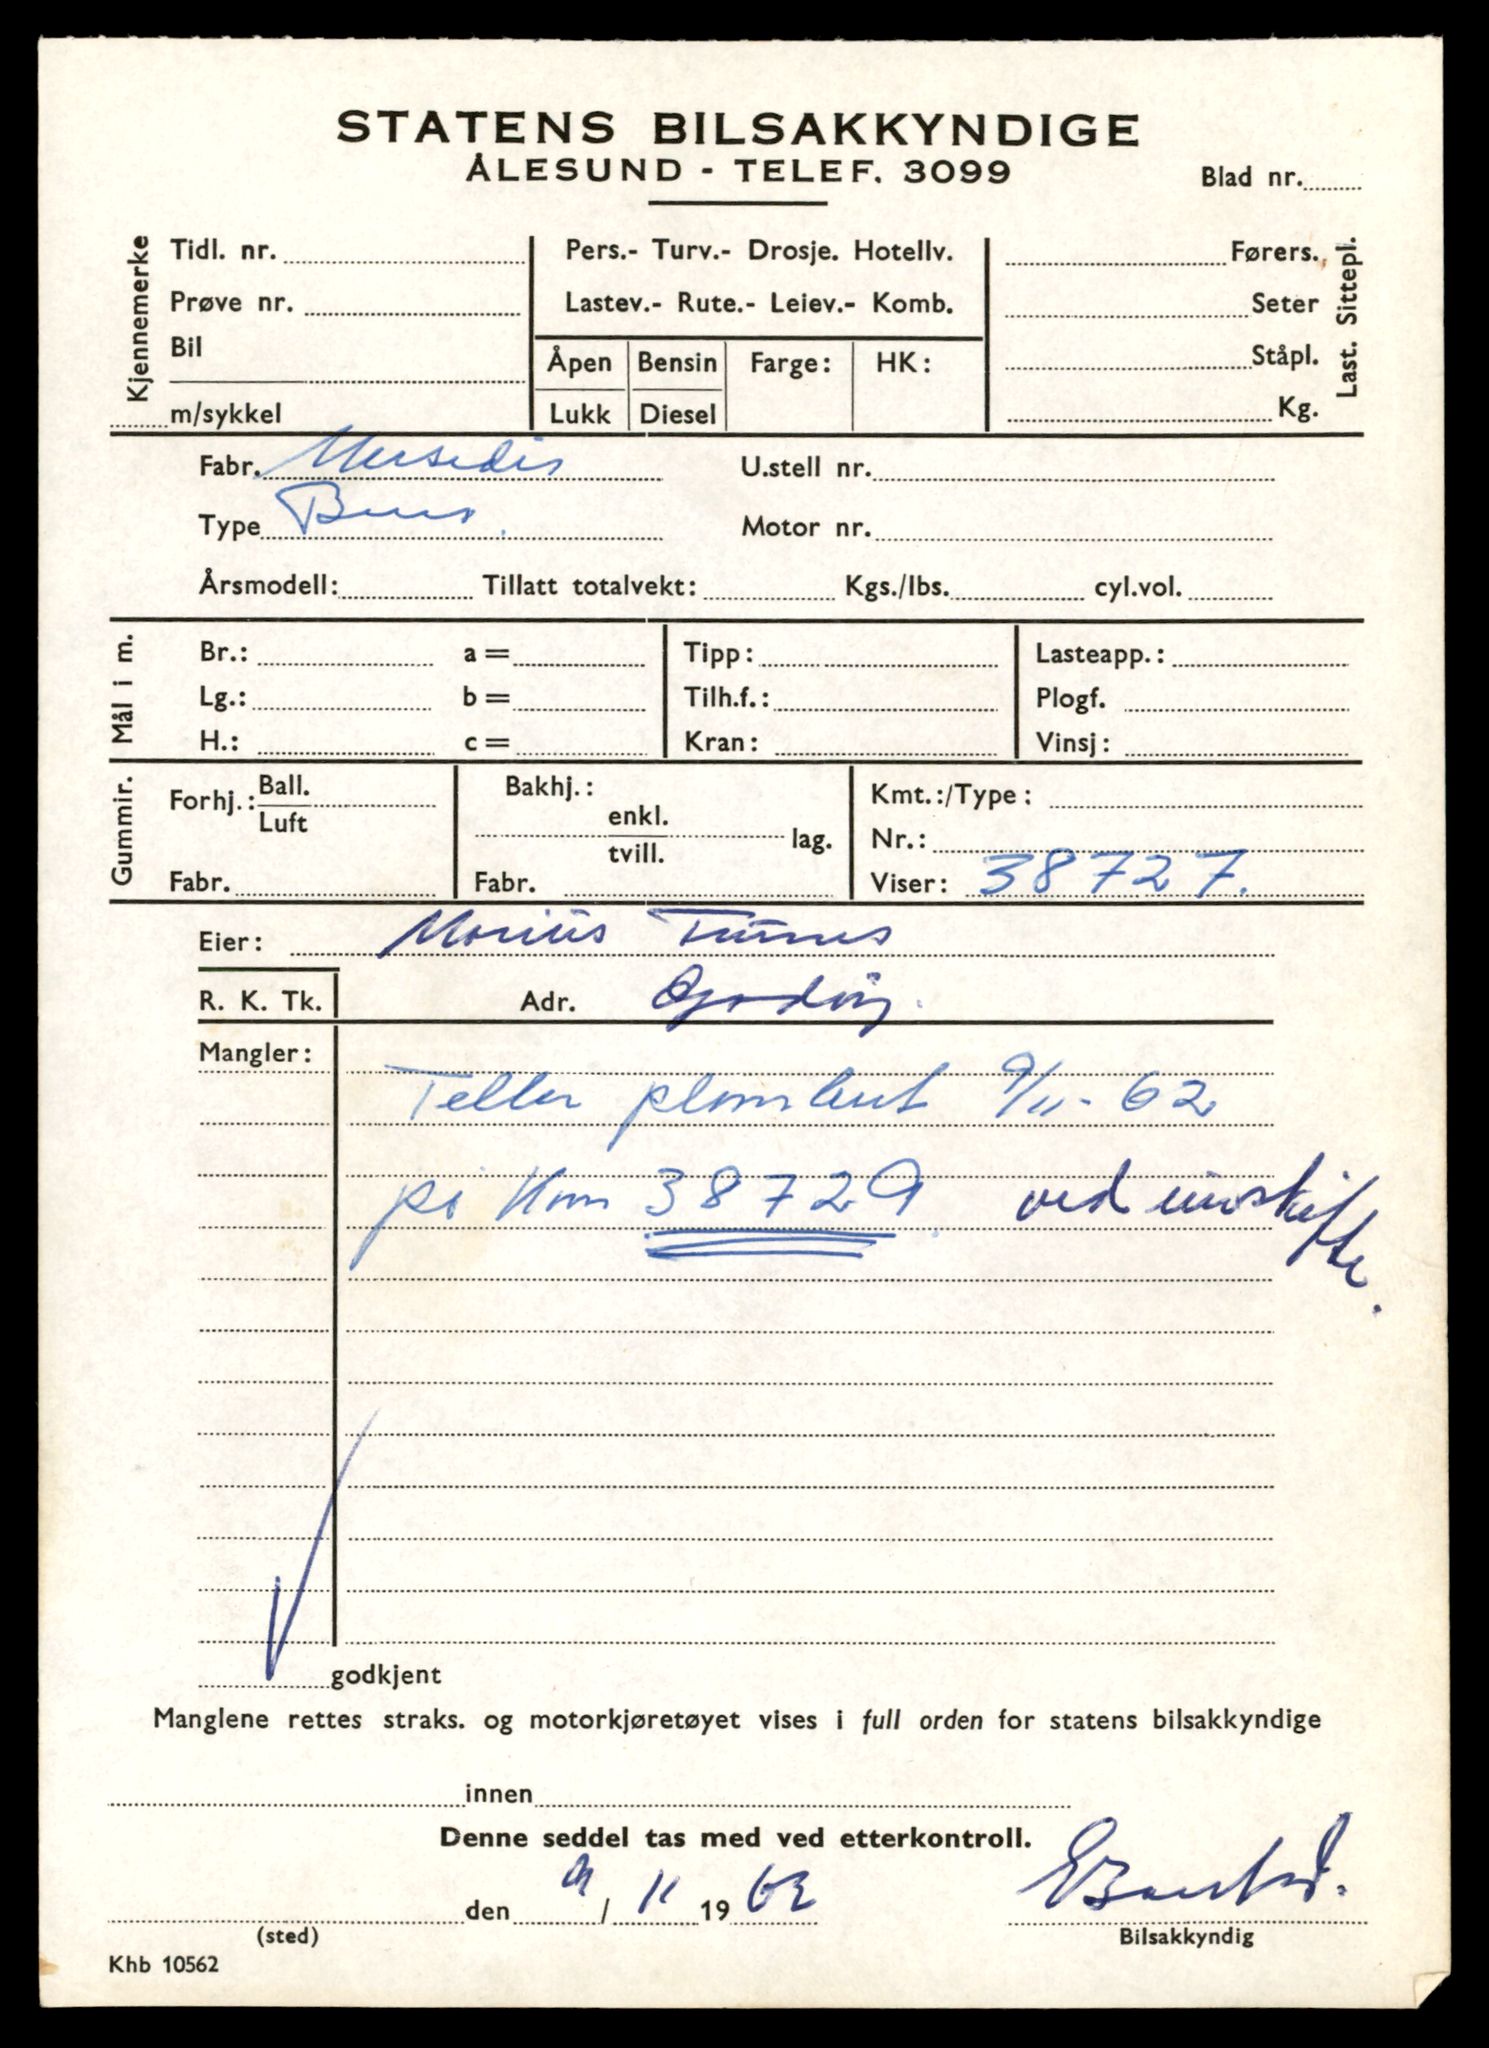 STATENS BILSAKKYNDIGE
ÅLESUND - TELEF. 3099
Blad nr.
Kjennemerke
Tidl. nr.
Prøve nr.
Bil
m/sykkel
Pers.- Turv.- Drosje. Hotellv.
Lastev.- Rute.- Leiev.- Komb.
Åpen Bensin Farge: HK:
Lukk Diesel
Førers.
Seter
Ståpl.
Kg.
Last. Sittepl.
Fabr. Mersedes
U.stell nr.
Type Buss.
Motor nr.
Årsmodell: Tillatt totalvekt: Kgs./lbs. cyl.vol.
Mål i m.
Br.: a = Tipp: Lasteapp.:
Lg.: b = Tilh.f.: Plogf.
H.: c = Kran: Vinsj:
Gummir.
Forhj.: Ball.
Luft
Fabr.
Bakhj.:
enkl.
tvill. lag.
Fabr.
Kmt.:/Type:
Nr.:
Viser: 38727.
Eier: Marius
R. K. Tk. Adr.
Mangler:
Teller plombert 9/11-62
på Km 38729. ved utskifte.
godkjent
Manglene rettes straks. og motorkjøretøyet vises i full orden for statens bilsakkyndige
innen
Denne seddel tas med ved etterkontroll.
den 9/11 1962
(sted)
Bilsakkyndig
Khb 10562